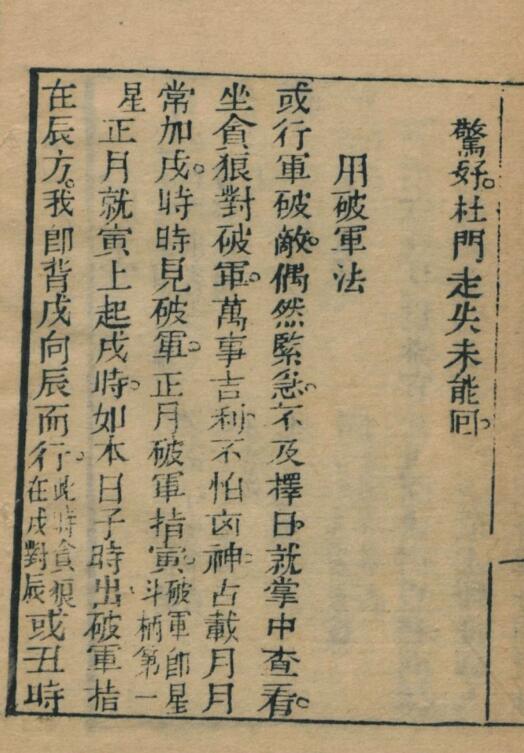 驚好。杜門走失未能回。
用破軍法
或行軍破敵。偶然緊急。不及擇日。就掌中查看。
坐貪狼對破軍。萬事吉利。不怕凶神。占載月月
常加戌。時時見破軍。正月破軍指寅。破軍卽星斗柄第一
星正月就寅上起戌時。如本日子時出。破軍指
在辰方。我卽背戌向辰而行。此時貪狼在戌對辰或丑時